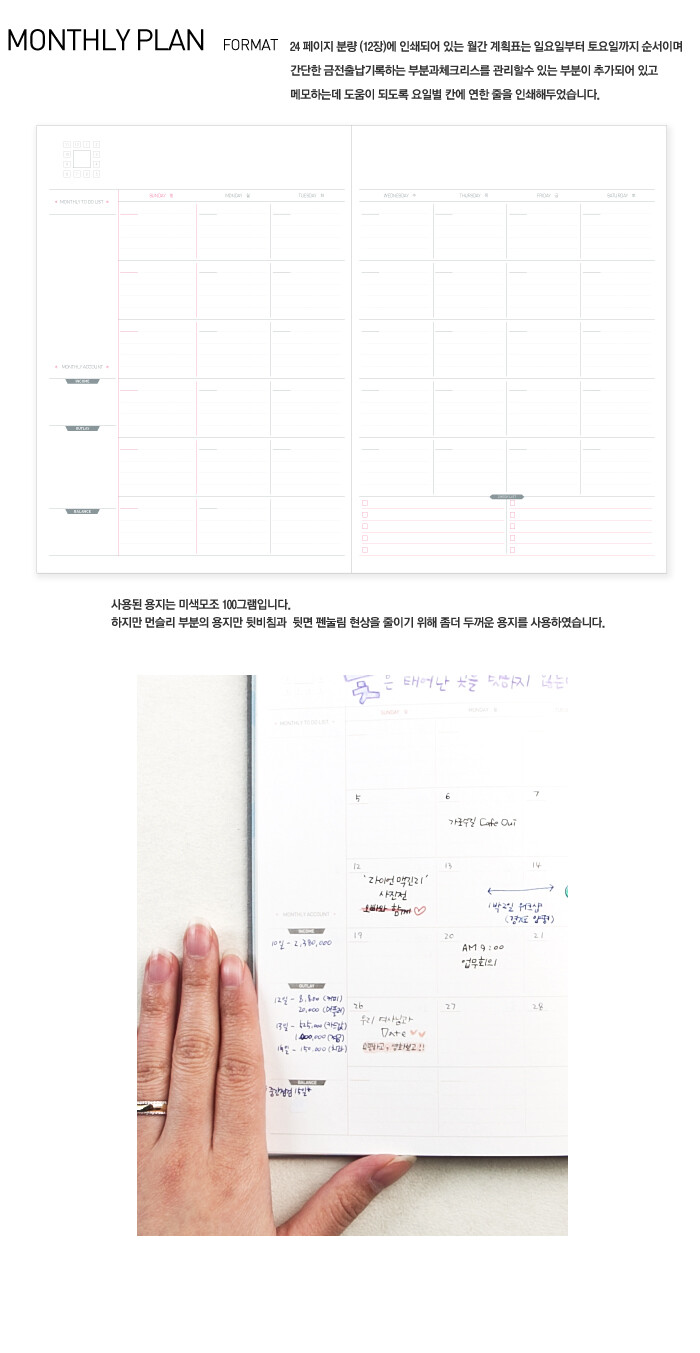 MONTHLY PLAN FORMAT
24 페이지 분량 (12장)에 인쇄되어 있는 월간 계획표는 일요일부터 토요일까지 순서이며
간단한 금전출납기록하는 부분과체크리스를 관리할수 있는 부분이 추가되어 있고
메모하는데 도움이 되도록 요일별 칸에 연한 줄을 인쇄해두었습니다.
MONTHLY TO DO LIST
SUNDAY
MONDAY
TUESDAY
WEDNESDAY
THURSDAY
FRIDAY
SATURDAY
MONTHLY ACCOUNT
INCOME
OUTLAY
BALANCE
사용된 용지는 미색모조 100그램입니다.
하지만 먼슬리 부분의 용지만 뒷비침과 뒷면 펜눌림 현상을 줄이기 위해 좀더 두꺼운 용지를 사용하였습니다.
은 태어난 곳을 탓하지
MONTHLY TO DO LIST
SUNDAY
MONDAY
5
6
7
가로수길 Cafe Oui
12
13
14
'라이언 맥긴리'
사진전
오빠와 함께
1박2일 워크샵
(경기도 양평)
MONTHLY ACCOUNT
INCOME
10일 - 2,380,000
19
20
21
AM 9:00
업무회의
OUTLAY
12일 - 8,800 (커피)
20,000
26
27
28
우리 여사님과
Date
BALANCE